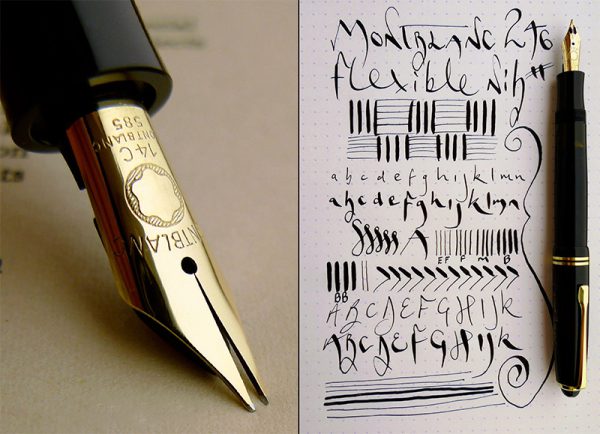 ONTBLANC
585
14 C
NTBLANC
MONTBLANC 246
flexible Nib
a b c d e f g h i j k l m n
a b c d e f g h i j k l m n
A
EF F M B
BB
A B C D E F G H I J K
A B C D E F G H I J K